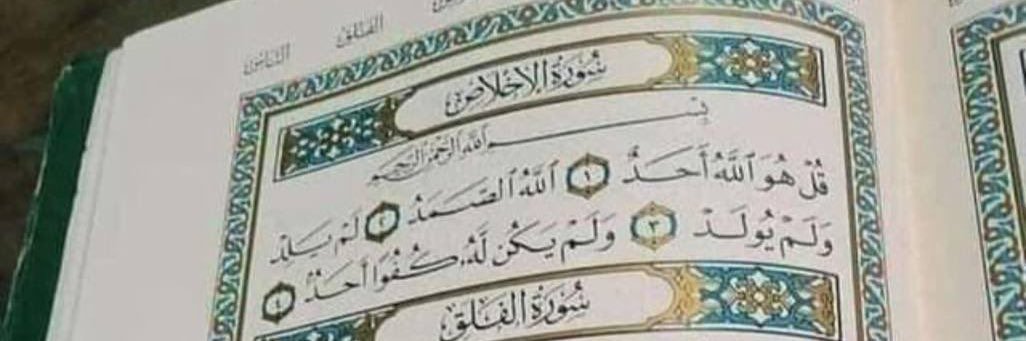 الفلق
الناس
سُورَةُ الإِخْلَاصِ
بِسْمِ اللَّهِ الرَّحْمَٰنِ الرَّحِيمِ
قُلْ هُوَ ٱللَّهُ أَحَدٌ ١ ٱللَّهُ ٱلصَّمَدُ ٢ لَمْ يَلِدْ
وَلَمْ يُولَدْ ٣ وَلَمْ يَكُن لَّهُۥ كُفُوًا أَحَدٌۢ ٤
سُورَةُ الفَلَقِ